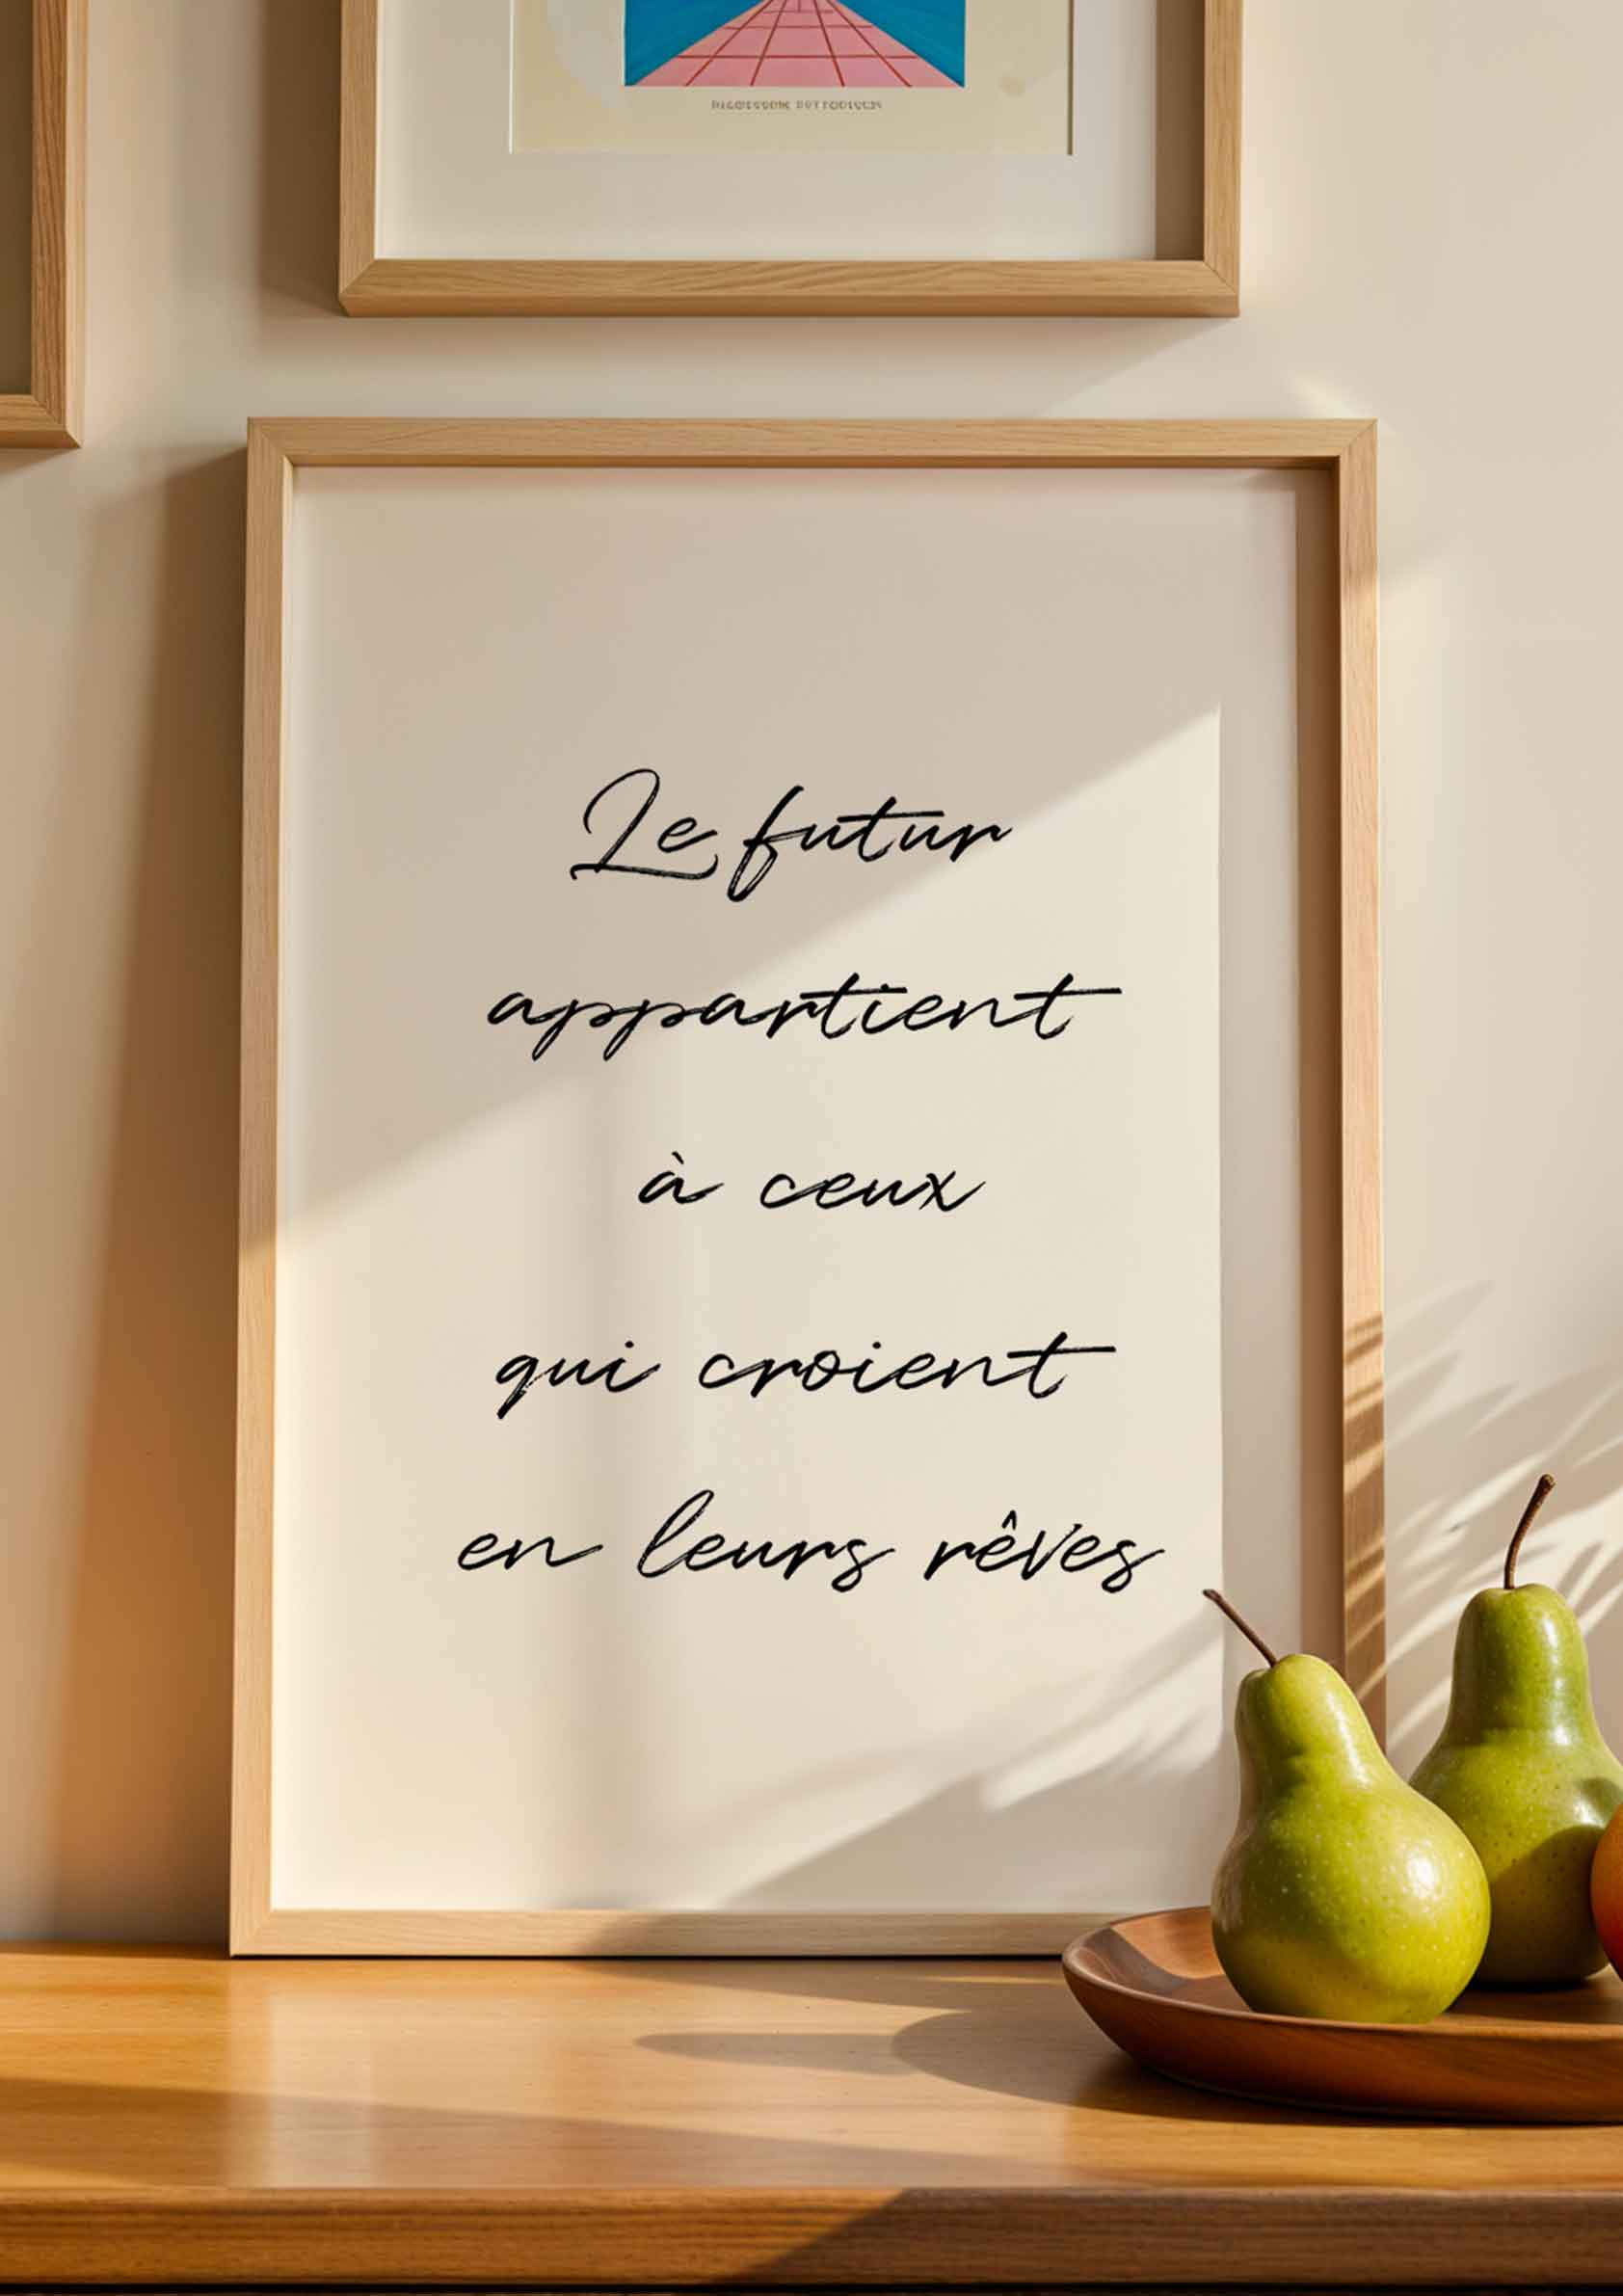 Le futur
appartient
à ceux
qui croient
en leurs rêves